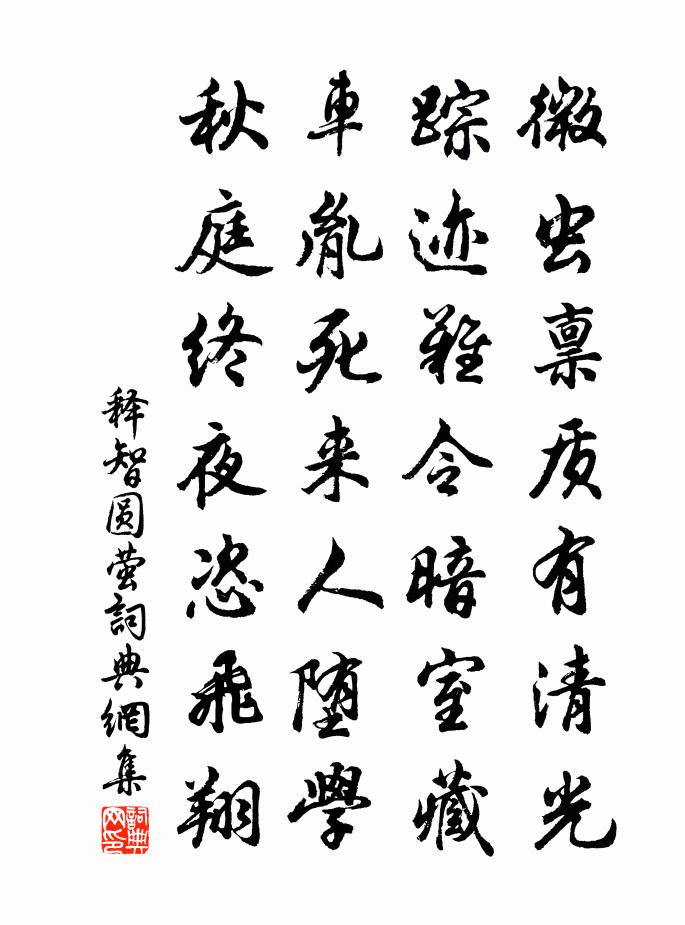 微虫禀质有清光
踪迹难令暗室藏
車胤死来人堕學
秋庭终夜恣飛翔
释智圆萤詞典網集
詞典网印